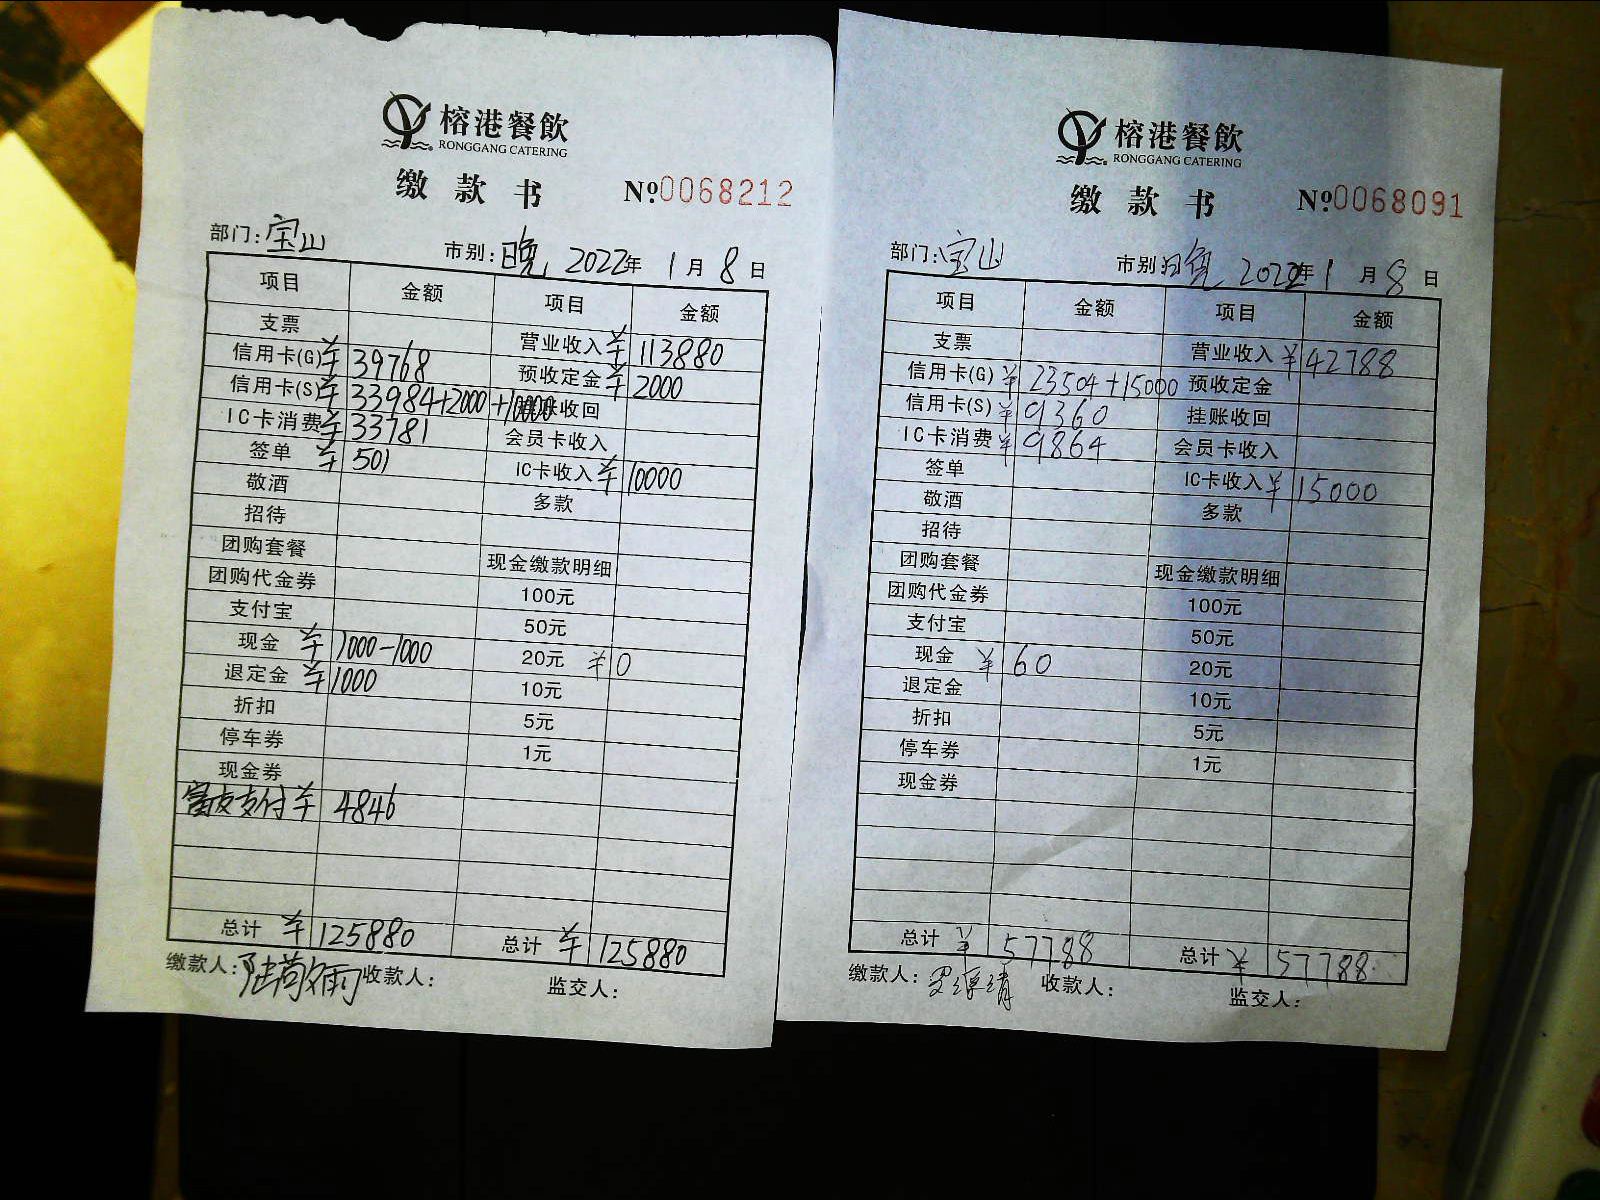 榕港餐飲
RONGGANG CATERING
缴款书 №0068212
部门:宝山 市别:晚 2022年1月8日
项目 金额 项目 金额
支票 营业收入¥113880
信用卡(G)¥39768 预收定金¥2000
信用卡(S)¥33984+2000+10000 账收回
IC卡消费¥33781 会员卡收入
签单¥501 IC卡收入¥10000
敬酒 多款
招待
团购套餐 现金缴款明细
团购代金券 100元
支付宝 50元
现金¥1000-1000 20元 ¥0
退定金¥1000 10元
折扣 5元
停车券 1元
现金券
富友支付¥4846
总计¥125880 总计¥125880
缴款人:陆敬雨 收款人: 监交人:
榕港餐飲
RONGGANG CATERING
缴款书 №0068091
部门:宝山 市别:日晚 2022年1月8日
项目 金额 项目 金额
支票 营业收入¥42788
信用卡(G)¥23504+15000 预收定金
信用卡(S)¥9360 挂账收回
IC卡消费¥9864 会员卡收入
签单 IC卡收入¥15000
敬酒 多款
招待
团购套餐 现金缴款明细
团购代金券 100元
支付宝 50元
现金¥60 20元
退定金 10元
折扣 5元
停车券 1元
现金券
总计¥57788 总计¥57788
缴款人: 收款人: 监交人: